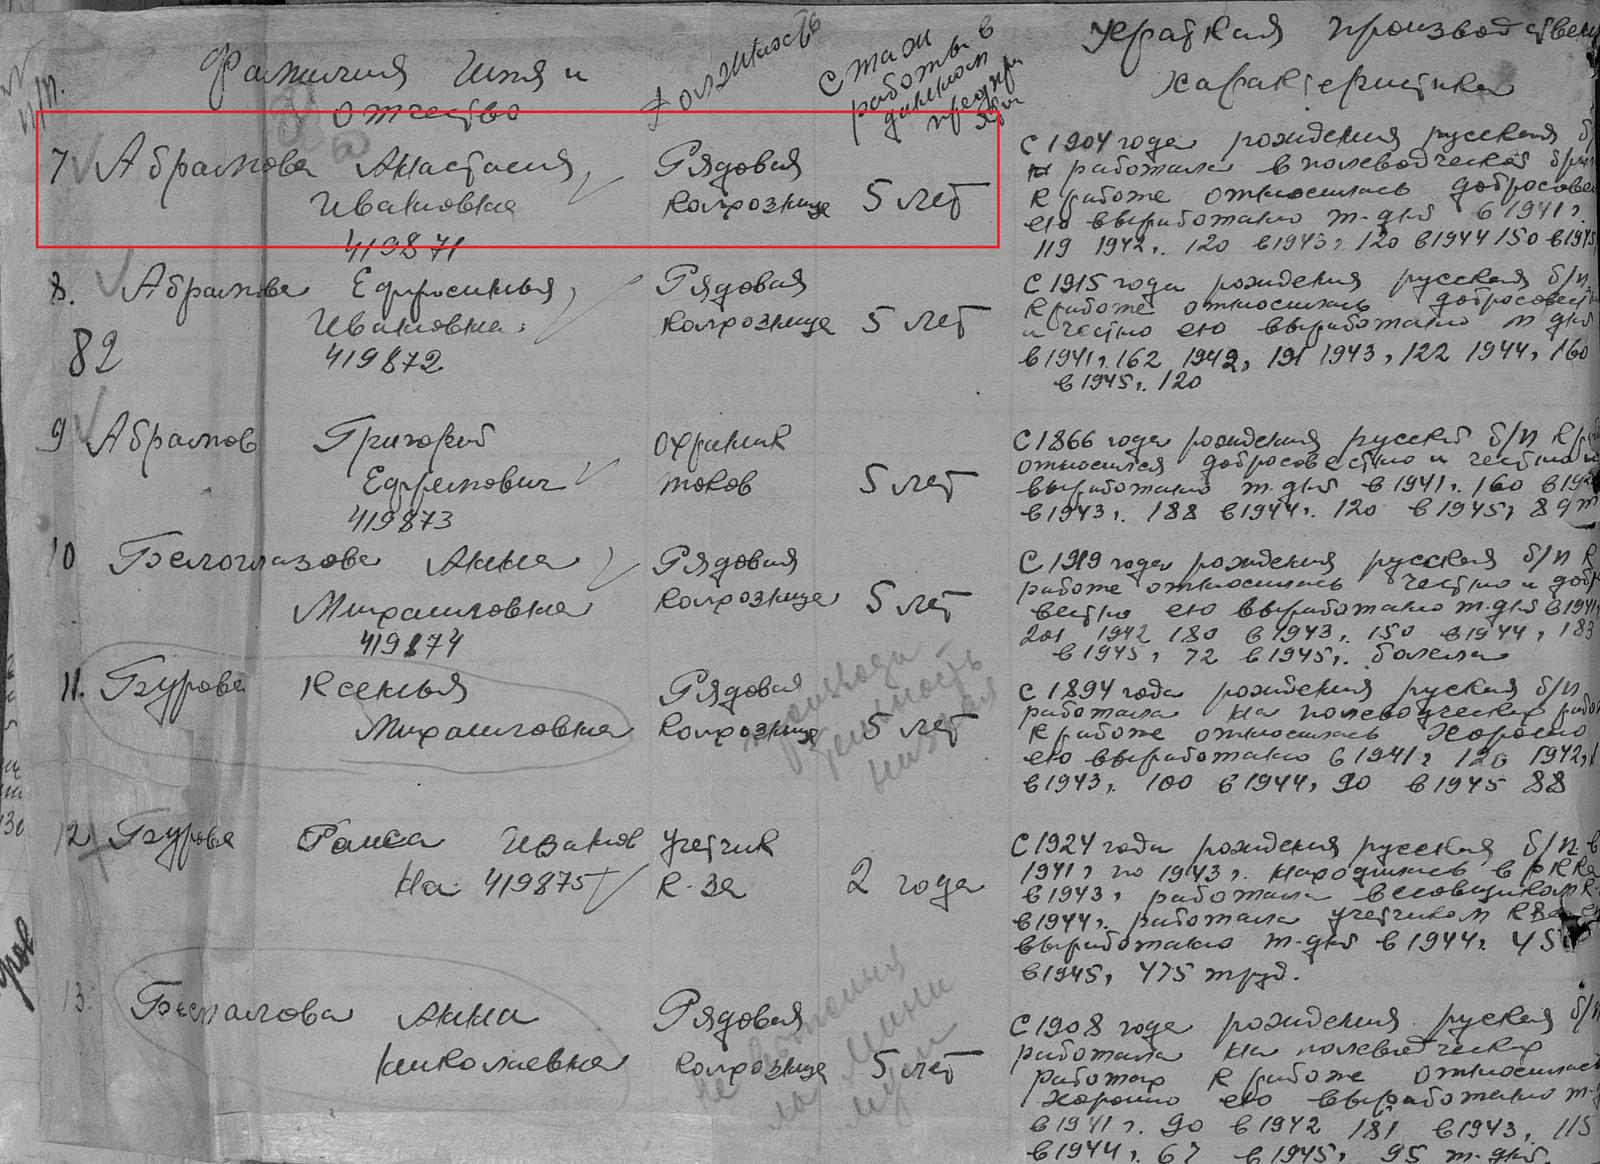 Фамилия Имя и
отчество
должность
стаж
работы в
данном
предпри
ятии
Краткая производствен
характеристика
7 Абрамова Анастасия
Ивановна
419871
Рядовая
колхозница
5 лет
С 1904 года рождения русская б/
работала в полеводческой бри
к работе относилась добросовес
ею выработано т-дней в 1941 г.
119 1942 г. 120 в 1943 г. 120 в 1944 150 в 1945
8. Абрамова Ефросинья
Ивановна
419872
82
Рядовая
колхозница
5 лет
С 1915 года рождения русская б/п
к работе относилась добросовест
и честно ею выработано т дней
в 1941 г. 162 1942 г. 191 1943 г. 122 1944 г. 160
в 1945 г. 120
9 Абрамов Григорий
Ефремович
419873
охраник
токов
5 лет
С 1866 года рождения русский б/п к р
относился добросовестно и честно
выработано т-дней в 1941 г. 160 в 1942
в 1943 г. 188 в 1944 г. 120 в 1945 г. 89 т
10 Белоглазова Анна
Михайловна
419874
Рядовая
колхозница
5 лет
С 1919 года рождения русская б/п к
работе относилась честно и добр
вестно ею выработано т-дней в 1941 г.
201 1942 180 в 1943 г. 150 в 1944 г. 183
в 1945 г. 72 в 1945 г. болела
11. Бурова Ксенья
Михайловна
Рядовая
колхозница
5 лет
производи
тельность
низкая
С 1894 года рождения руская б/п
работала на полеводческих рабо
к работе относилась хорошо
ею выработано в 1941 г. 120 1942 г.
в 1943 г. 100 в 1944 г. 90 в 1945 88
12 Бурова Раиса Иванов
на 419875
учетчик
к-за
2 года
С 1924 года рождения русская б/п в
1941 г по 1943 г. находилась в РККА
в 1943 г. работала весовщиком к-
в 1944 г. работала учетчиком
выработано т-дней в 1944 г. 45
в 1945 г. 475 труд.
13. Беспалова Анна
Николаевна
Рядовая
колхозница
5 лет
мини
му
С 1908 года рождения руская б/п
работала на полеводческих
работах к работе относилась
хорошо ею выработано т-
в 1941 г. 90 в 1942 181 в 1943 г. 115
в 1944 г. 67 в 1945 г. 95 т-дней.